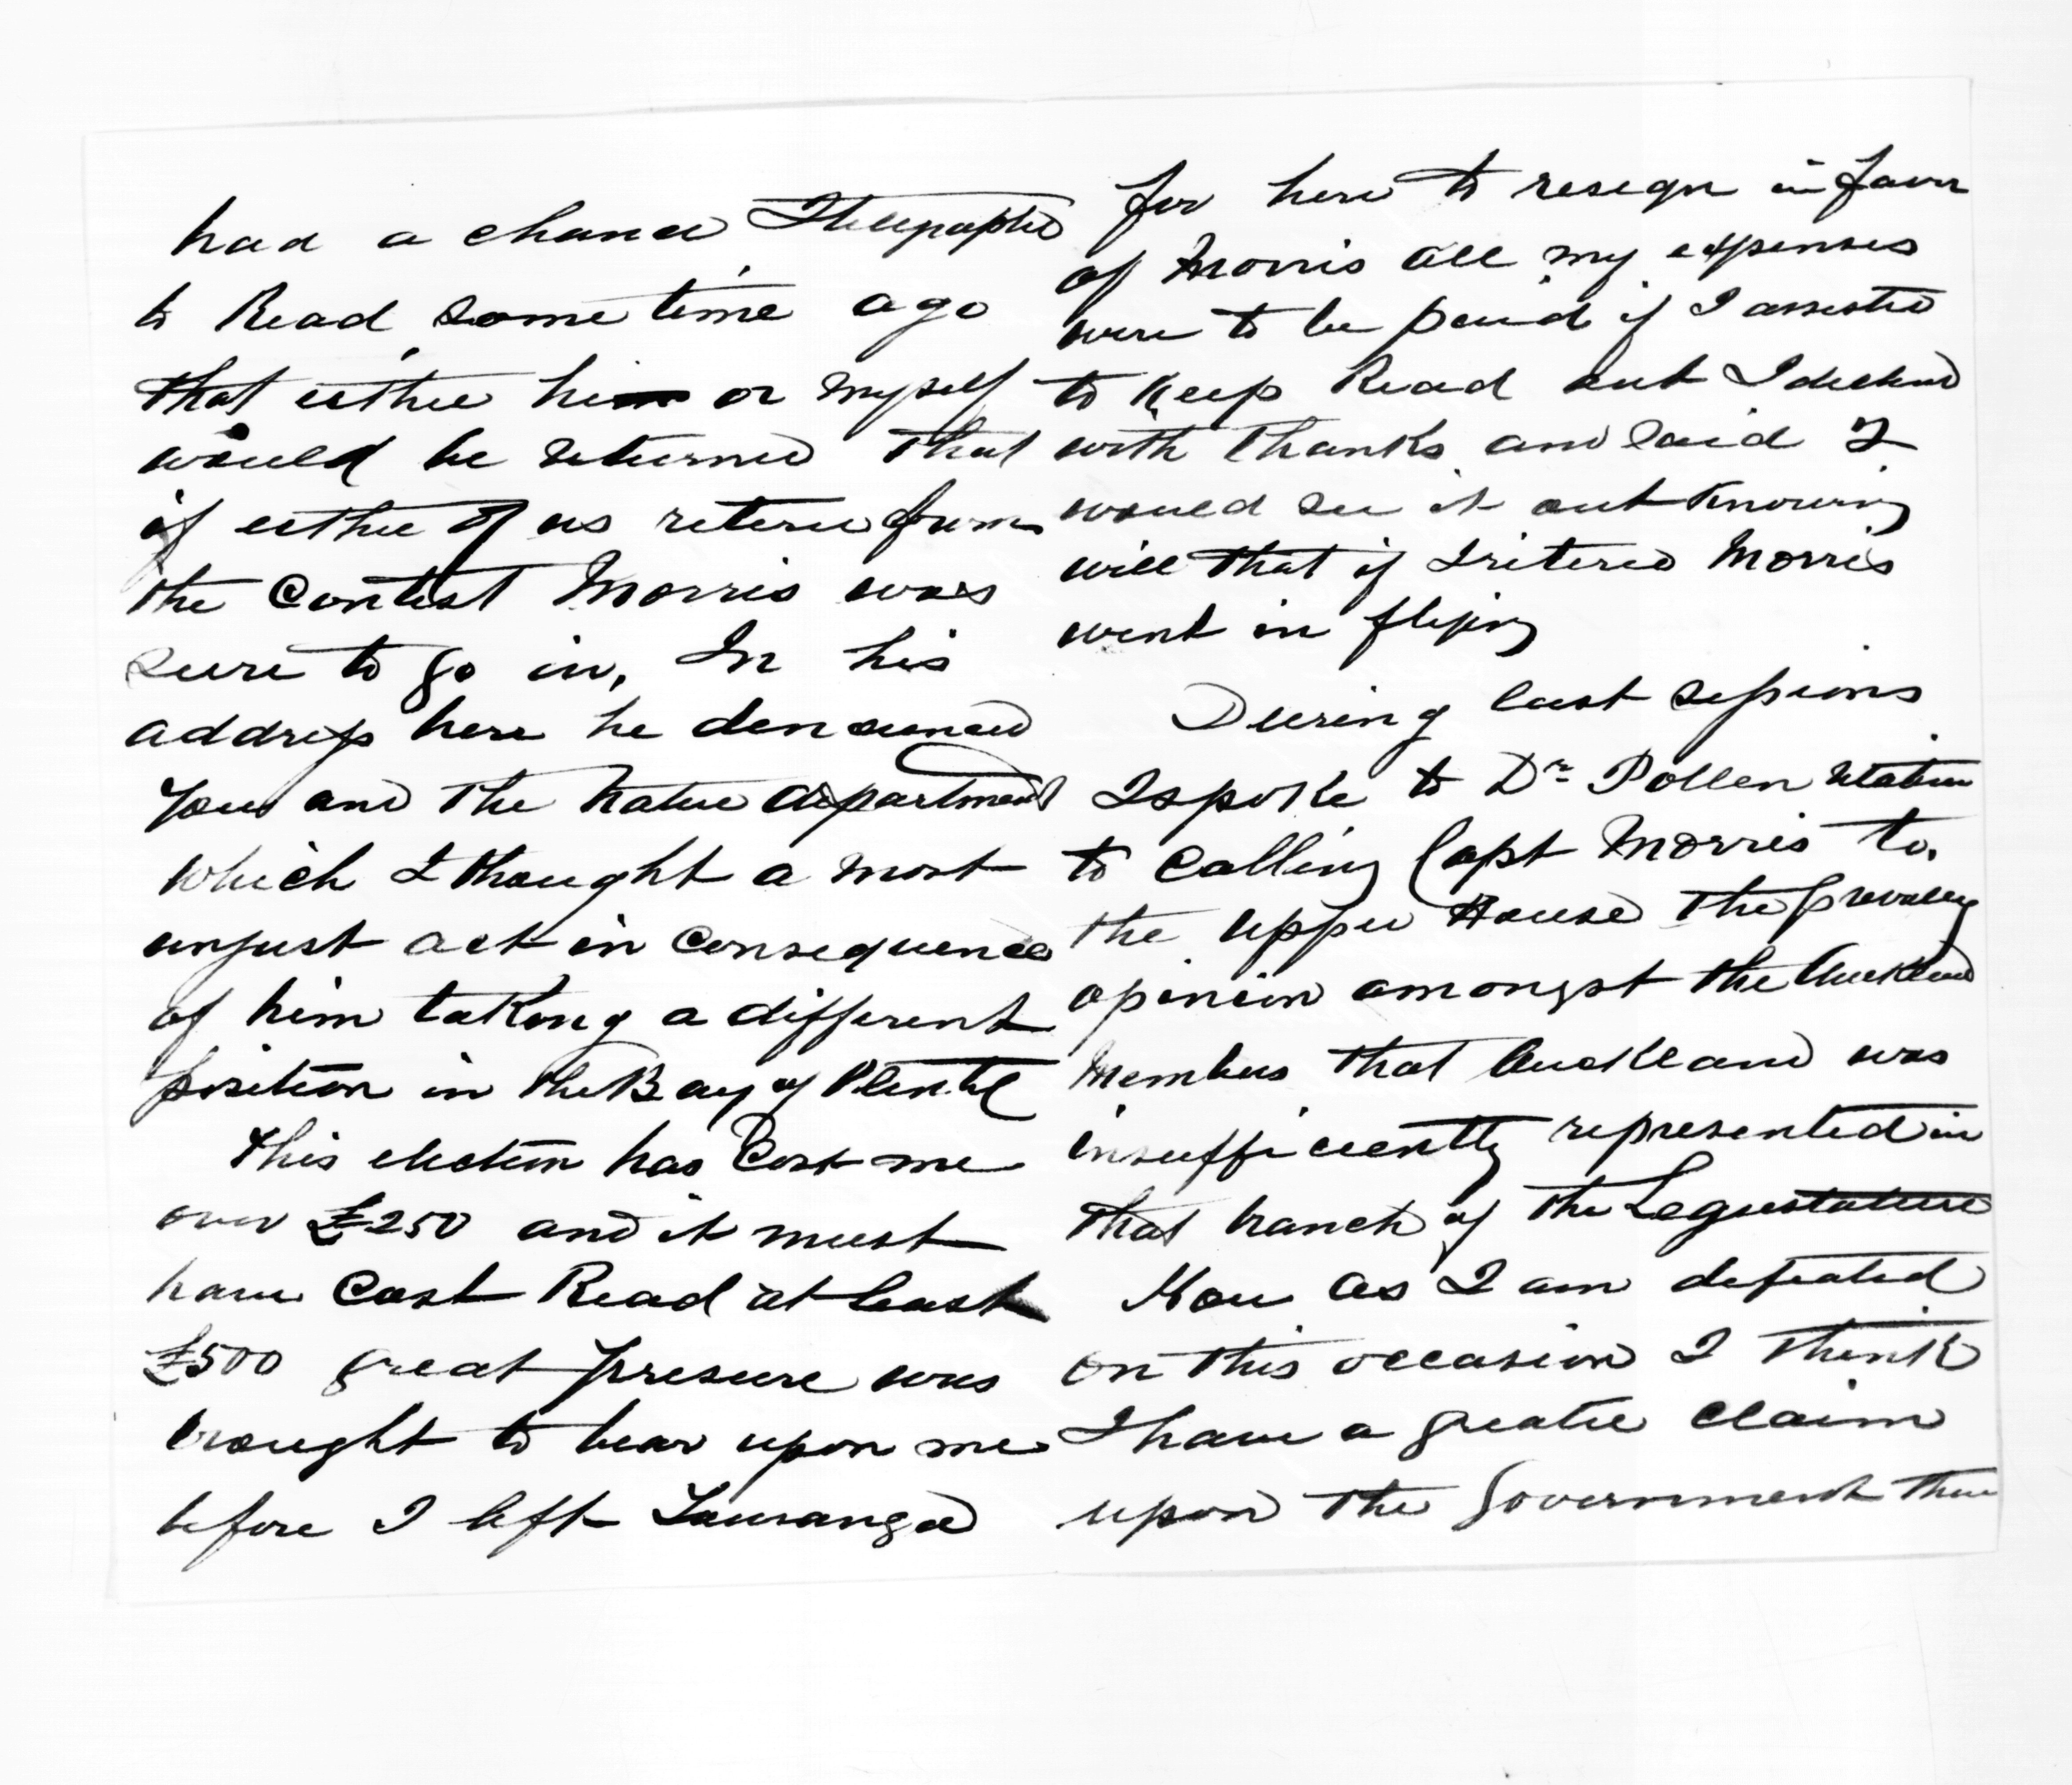 had a chance I telegraphed
to Read some time ago
that either him or myself
would be returned that
if either of us retire from
the Contest Morris was
sure to go in, In his
address here he denounced
you and the Native department
which I thought a most
unjust act in consequence
of him taking a different
position in the Bay of Plenty
This election has Cost me
over £250 and it must
have Cost Read at least
£500 great presure was
brought to bear upon me
before I left Tauranga
for here to resign in favor
of Morris all my expenses
were to be paid if I assisted
to Keep Read out I declined
with thanks and said I
would see it out Knowing
well that if I retired Morris
went in flying
During last sessions
I spoke to Dr Pollen relative
to Calling Capt Morris to
the upper House the prevailing
opinion amongst the Auckland
Members that Auckland was
insufficiently represented in
that branch of the Legislature
Now as I am defeated
on this occasion I think
I have a greater claim
upon the Government than